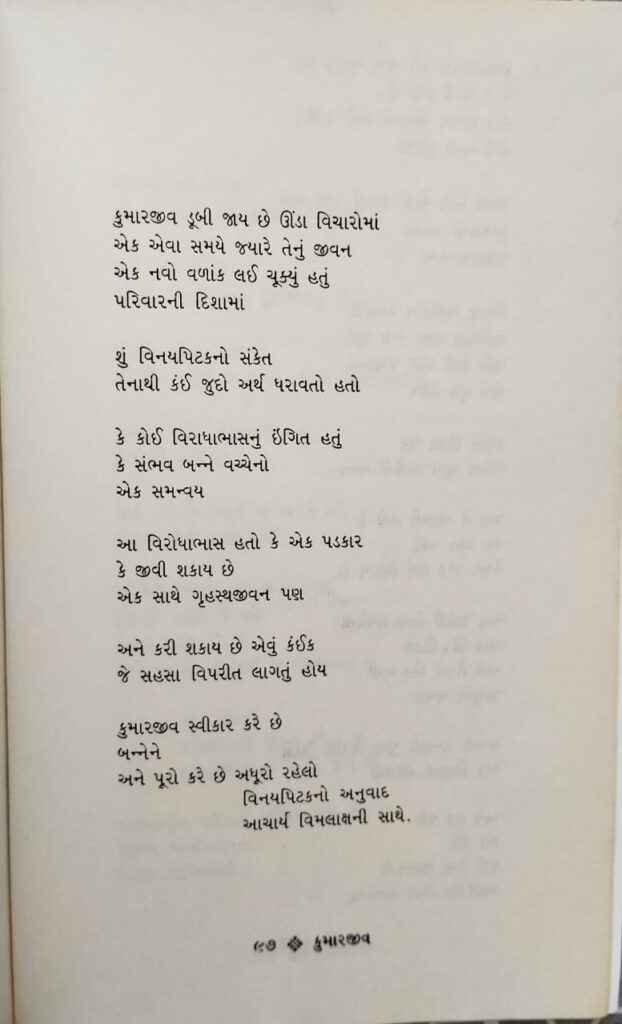 કુમારજીવ ડૂબી જાય છે ઊંડા વિચારોમાં
એક એવા સમયે જ્યારે તેનું જીવન
એક નવો વળાંક લઈ ચૂક્યું હતું
પરિવારની દિશામાં
શું વિનયપિટકનો સંકેત
તેનાથી કંઈ જુદો અર્થ ધરાવતો હતો
કે કોઈ વિરાધાભાસનું ઇંગિત હતું
કે સંભવ બન્ને વચ્ચેનો
એક સમન્વય
આ વિરોધાભાસ હતો કે એક પડકાર
કે જીવી શકાય છે
એક સાથે ગૃહસ્થજીવન પણ
અને કરી શકાય છે એવું કંઈક
જે સહસા વિપરીત લાગતું હોય
કુમારજીવ સ્વીકાર કરે છે
બન્નેને
અને પૂરો કરે છે અધૂરો રહેલો
વિનયપિટકનો અનુવાદ
આચાર્ય વિમલાક્ષની સાથે.
૯૭ ❖ કુમારજીવ